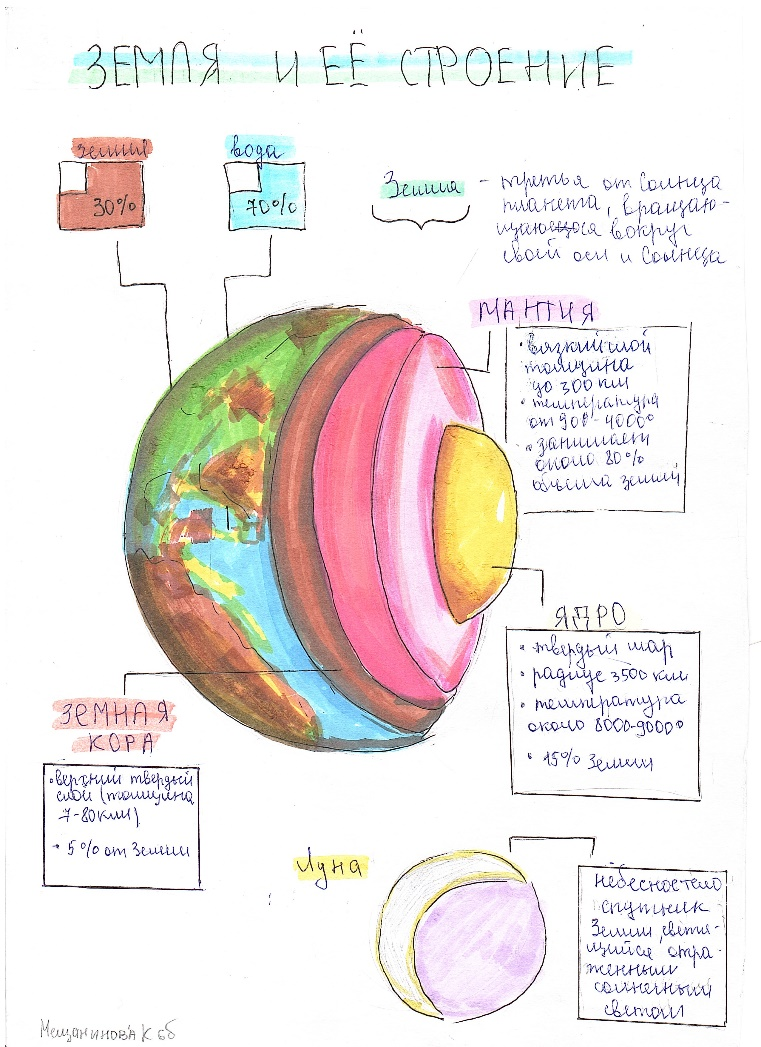 ЗЕМЛЯ И ЕЁ СТРОЕНИЕ
земля
30%
вода
70%
Земля - третья от Солнца
планета, вращаю-
щающаяся вокруг
свой оси и Солнца
МАНТИЯ
• вязкий слой
толщина
до 300 км
• температура
от 900-4000°
• занимает
около 80%
объёма Земли
ЯДРО
• твердый шар
• радиус 3500 км
• температура
около 8000-9000°
• 15% Земли
ЗЕМНАЯ
КОРА
• верхний твердый
слой (толщина
7-80 км)
• 5% от Земли
Луна
небесное тело
спутник
Земли, светя-
щийся отра-
женным
солнечный
светом
Мещанинова К 6б